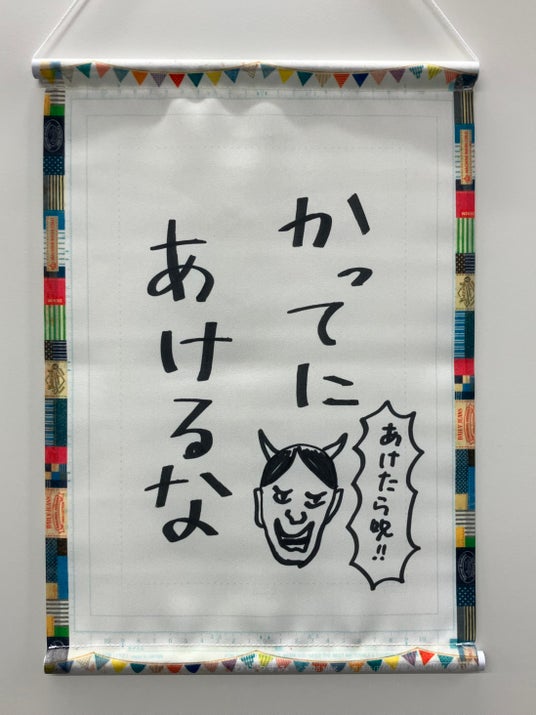 かってに
あけるな
あけたら呪!!